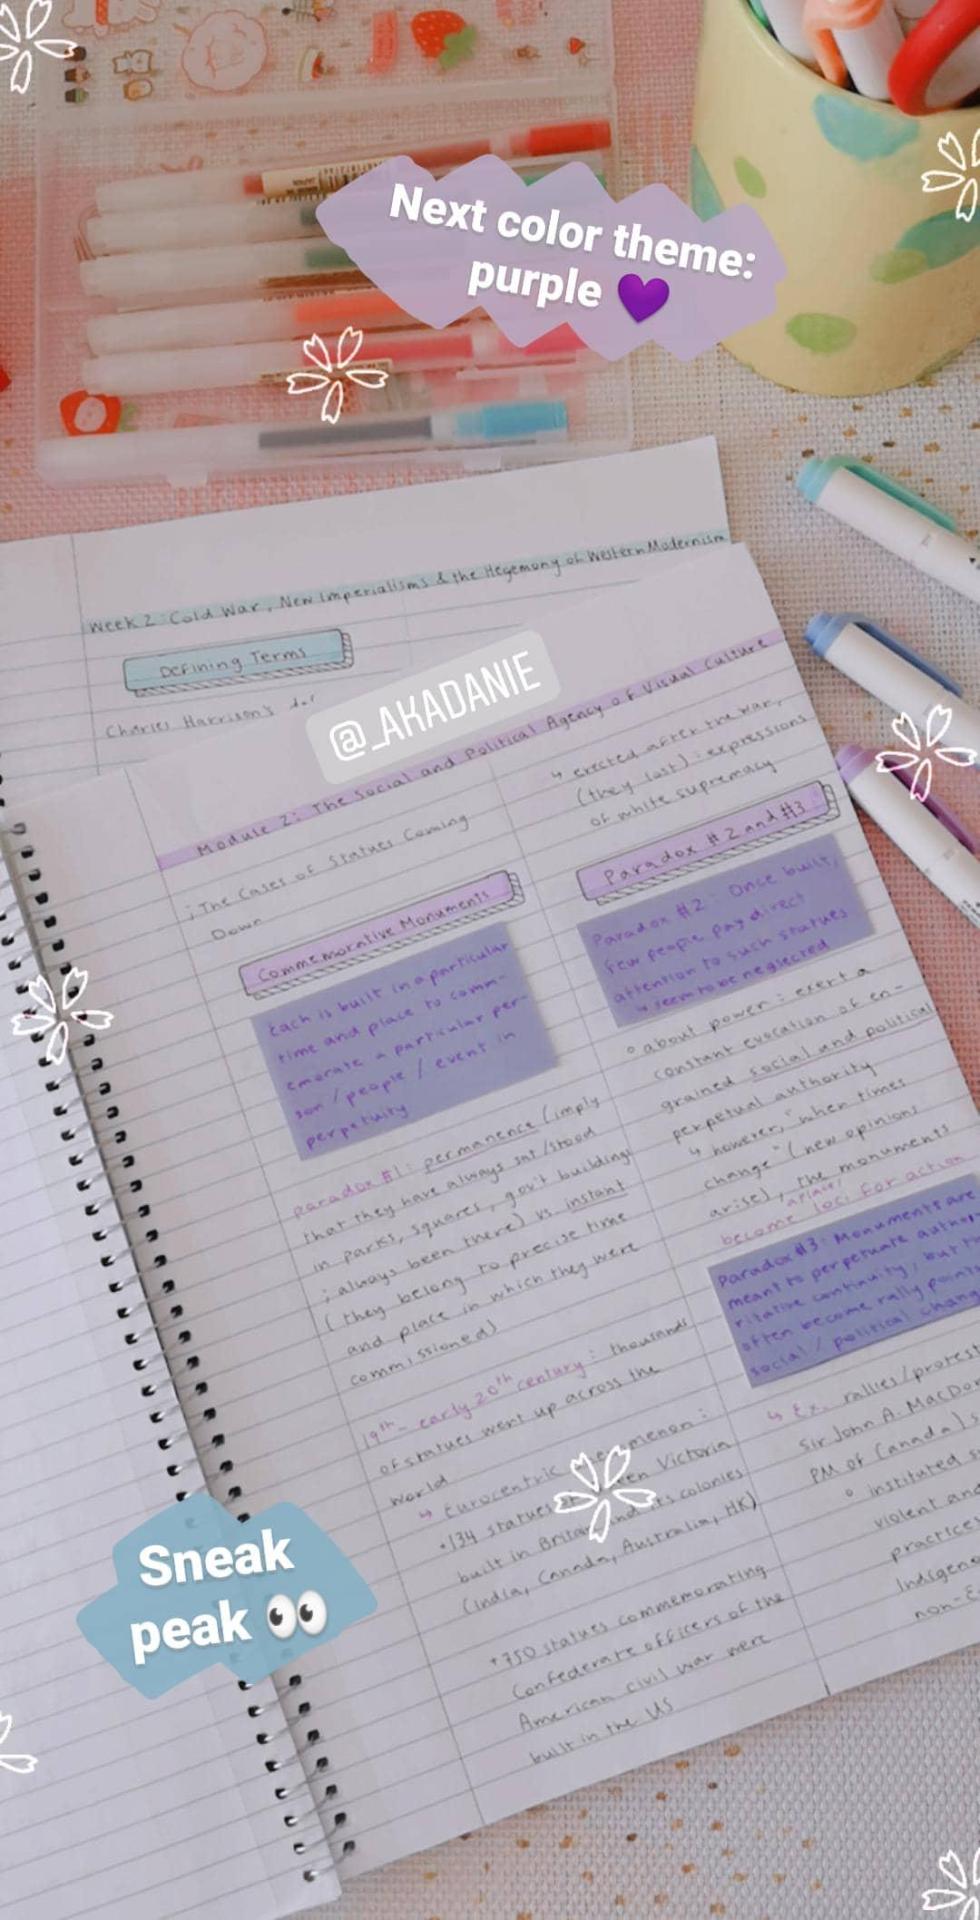 Next color theme:
purple 💜
Week 2: Cold War, New Imperialisms & the Hegemony of Western Modernism
Defining Terms
Charles Harrison's
@_AKADANIE
Module 2: The Social and Political Agency of Visual Culture
; The Cases of Statues Coming
Down
Commemorative Monuments
Each is built in a particular
time and place to comm-
emorate a particular per-
son / people / event in
perpetuity
paradox #1: permanence (imply
that they have always sat/stood
in parks, squares, gov't buildings
; always been there) vs instant
(they belong to precise time
and place in which they were
commissioned)
19th - early 20th century: thousands
of statues went up across the
world
↳ Eurocentric phenomenon:
+134 statues Queen Victoria
built in Britain and its colonies
(India, Canada, Australia, HK)
+750 statues commemorating
Confederate officers of the
American civil war were
built in the US
↳ erected after the war,
(they lost): expressions
of white supremacy
Paradox #2 and #3
Paradox #2: Once built,
few people pay direct
attention to such statues
↳ seem to be neglected
° about power: exert a
constant evocation of en-
grained social and political
perpetual authority
↳ however, "when times
change" (new opinions
arise), the monuments
become loci for action
Paradox #3: Monuments are
meant to perpetuate autho-
ritative continuity, but
often become rally points
social / political change
↳ Ex. rallies/protest
Sir John A. MacDon
PM of Canada)
° instituted
violent and
practices
Indigen
non-E
Sneak
peak 👀